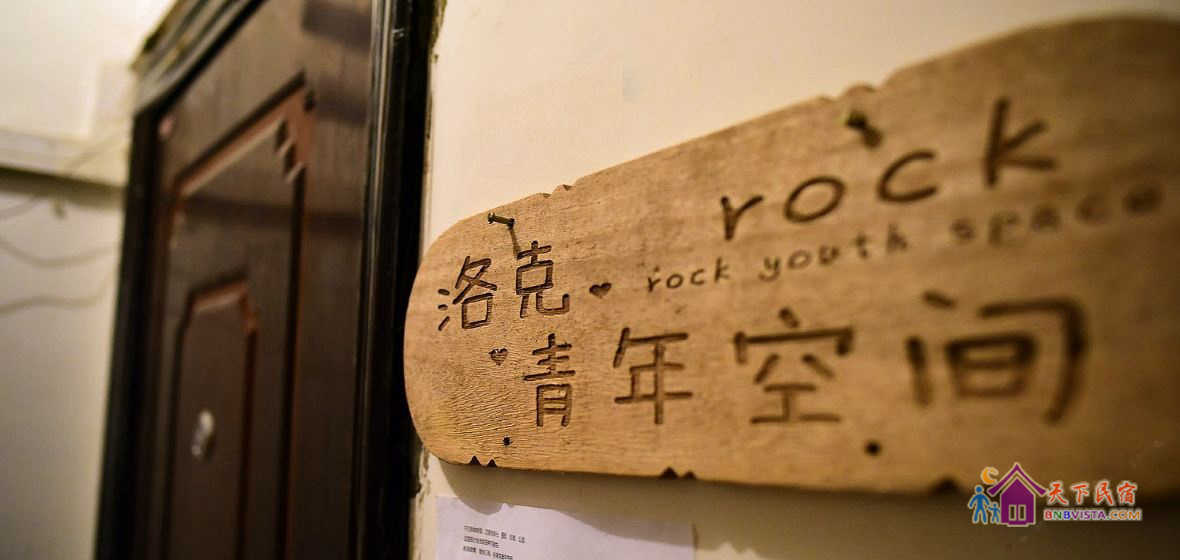 rock
洛克 rock youth space
青年空间
天下民宿
BNBVISTA.COM